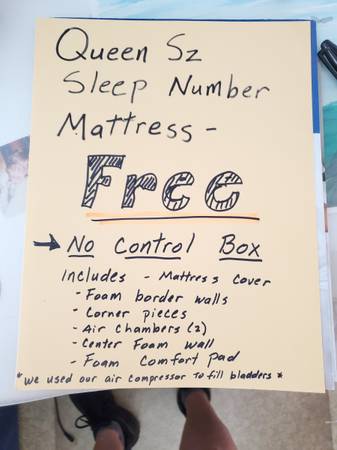 Queen Sz
Sleep Number
Mattress -
Free
→ No Control Box
Includes - Mattress Cover
- Foam border walls
- Corner pieces
- Air Chambers (2)
- Center Foam Wall
- Foam Comfort Pad
*We used our air compressor To fill bladders*